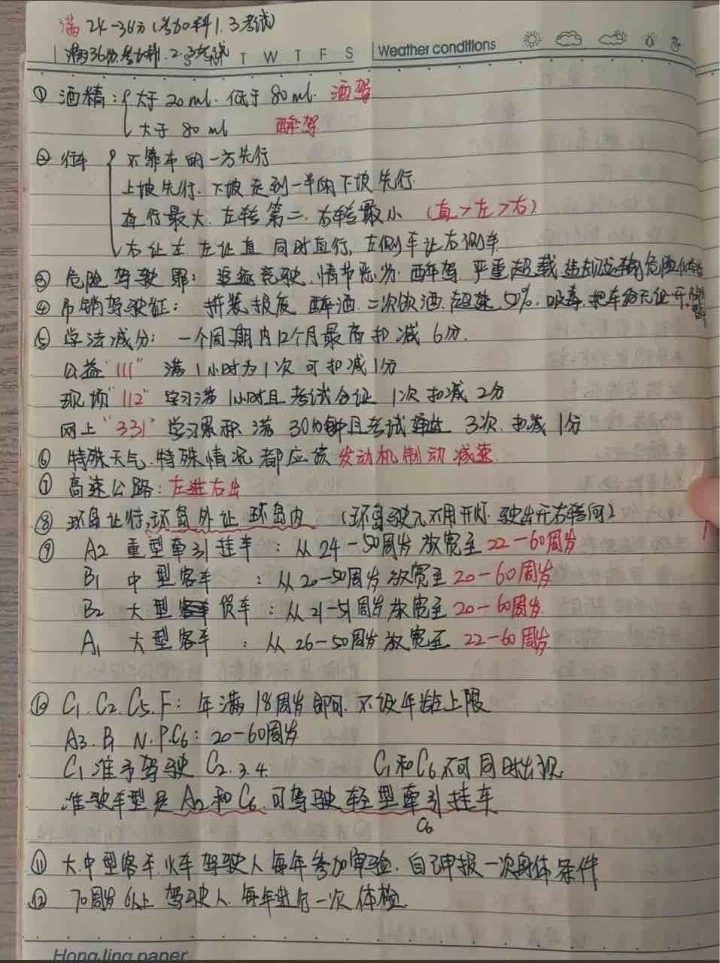 满24-36分(参加科1.3考试)
满36分.参加科1.2.3考试 T W T F S Weather conditions
① 酒精:大于20ml.低于80ml.酒驾
大于80ml 醉驾
② 行车 不靠车的一方先行
上坡先行.下坡走到一半的下坡先行
直行最大.左转第二.右转最小(直>左>右)
右让左.左让直 同时直行,左侧车让右侧车
③ 危险驾驶罪:追逐竞驶.情节恶劣.醉驾.严重超载
④ 吊销驾驶证:拼装报废 醉酒.二次饮酒.超速50%.吸毒.把车给无证开
⑤ 学法减分:一个周期内12个月最高扣减6分.
公益"111" 满1小时为1次可扣减1分
现场"112" 学习满1小时且考试合证 1次扣减2分
网上"331" 学习累积满30分钟且考试 3次.扣减1分
⑥ 特殊天气.特殊情况都应该发动机制动减速
⑦ 高速公路:左进右出
⑧ 环岛让行,环岛外让环岛内(环岛驶入不用开灯.驶出开右转向)
⑨ A2 重型牵引挂车:从24-50周岁放宽至22-60周岁
B1 中型客车:从20-50周岁放宽至20-60周岁
B2 大型货车:从21-51周岁放宽至20-60周岁
A1 大型客车:从26-50周岁放宽至22-60周岁
⑩ C1.C2.C5.F:年满18周岁即可.不设年龄上限
A3.B N.P.C6:20-60周岁
C1准予驾驶C2.3.4 C1和C6不可同时出现
准驶车型是A2和C6.可驾驶轻型牵引挂车
C6
⑪ 大.中型客车.火车驾驶人每年参加审验.自己申报一次身体条件
⑫ 70周岁以上驾驶人.每年进行一次体检
HongJing paper